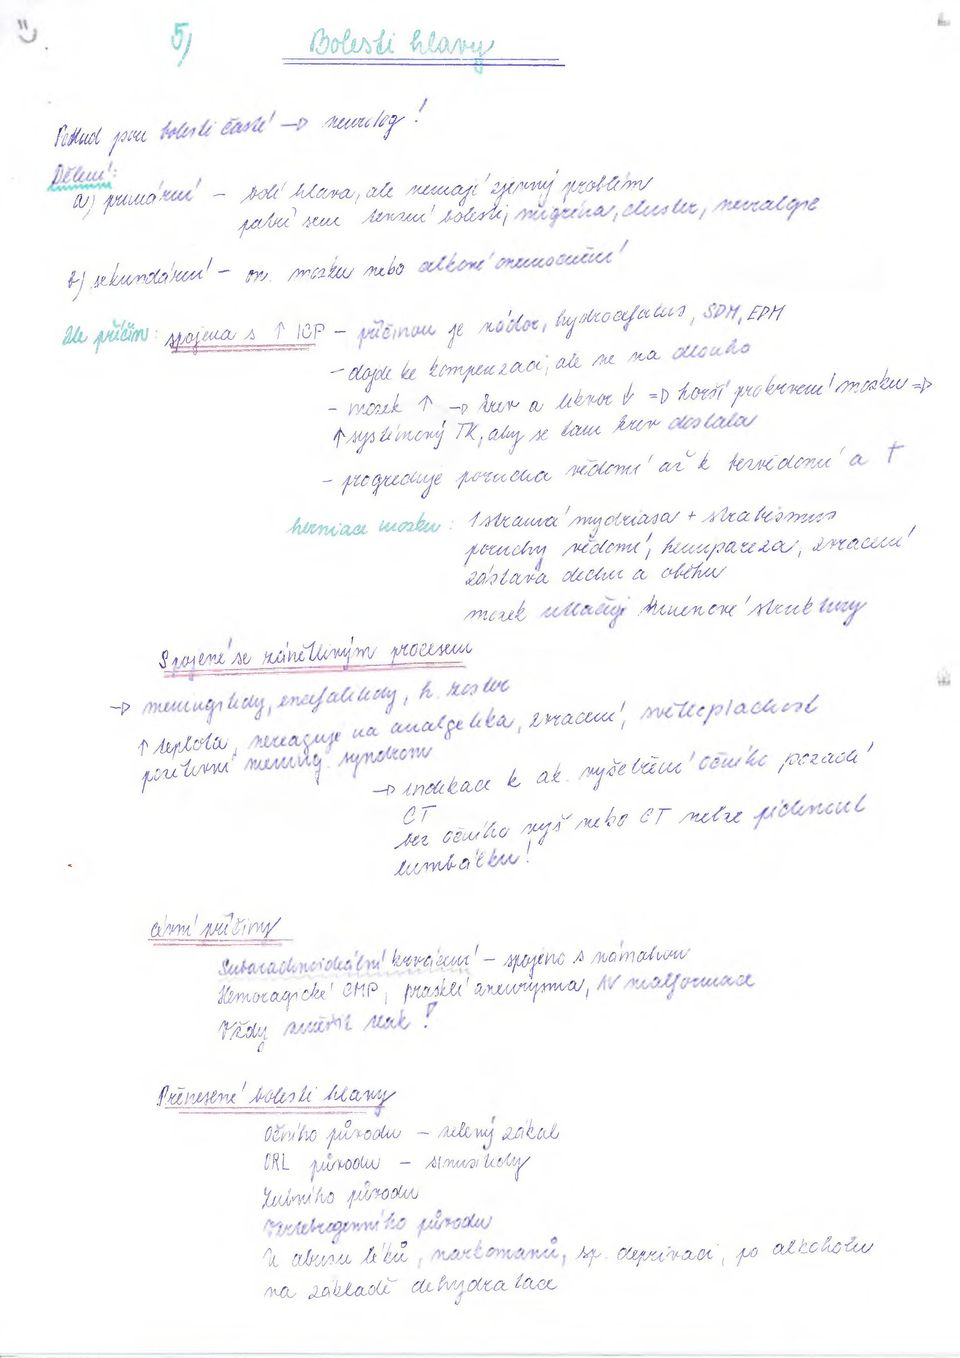 5) Bolesti hlavy
Pokud jsou bolesti časté → neurolog!
Dělení:
a) primární – bolí hlava, ale nemají zjevný problém
patří sem tenzní bolesti, migréna, cluster, neuralgie
b) sekundární – on. mozku nebo celkové onemocnění
Dle příčin: spojena s ↑ ICP – příčinou je nádor, hydrocefalus, SDH, EDH
– dojde ke kompenzaci, ale ne na dlouho
– mozek ↑ → krev a likvor ↓ => horší prokrvení mozku =>
↑ systémový TK, aby se tam krev dostala
– progreduje porucha vědomí až k bezvědomí a †
herniace mozku: 1stranná mydriasa + strabismus
poruchy vědomí, hemipareza, zvracení
zástava dechu a oběhu
mozek utlačuje kmenové struktury
Spojené se zánětlivým procesem
→ meningitidy, encefalitidy, h. zoster
↑ teplota, nereaguje na analgetika, zvracení, světloplachost
pozitivní mening. syndrom
→ indikace k ak. vyšetření očního pozadí
CT
bez očního vyš nebo CT nelze píchnout
lumbálku!
cévní příčiny
Subarachnoideální krvácení – spojeno s námahou
Hemoragické CMP, prasklé aneurysma, AV malformace
Vždy změřit tlak!
Přenesené bolesti hlavy
Očního původu – zelený zákal
ORL původu – sinusitidy
Zubního původu
Vertebrogenního původu
U abusu léků, narkomanů, sp. deprivaci, po alkoholu
na základě dehydratace